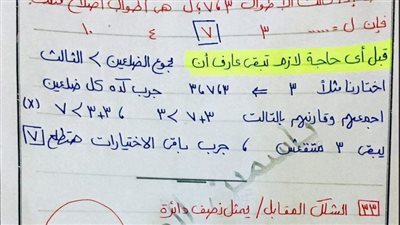 الأطوال ٣ ، ٧ ، ل هى أطوال أضلاع مثلث
فإن ل = .... ٣ ٧ ٤ ١٠
قبل أى حاجة لازم تبقى عارف أن مجموع الضلعين > الثالث
اختارنا مثلاً ٣ ⇐ ٣ ، ٧ ، ٣ جرب كده كل ضلعين
اجمعهم وقارنهم بالتالت ٣ < ٧+٣ ، ٧ < ٣+٣ (x)
يبقى ٣ متنفعش ، جرب باقى الاختيارات هتطلع ٧
٣٣ الشكل المقابل / يمثل نصف دائرة